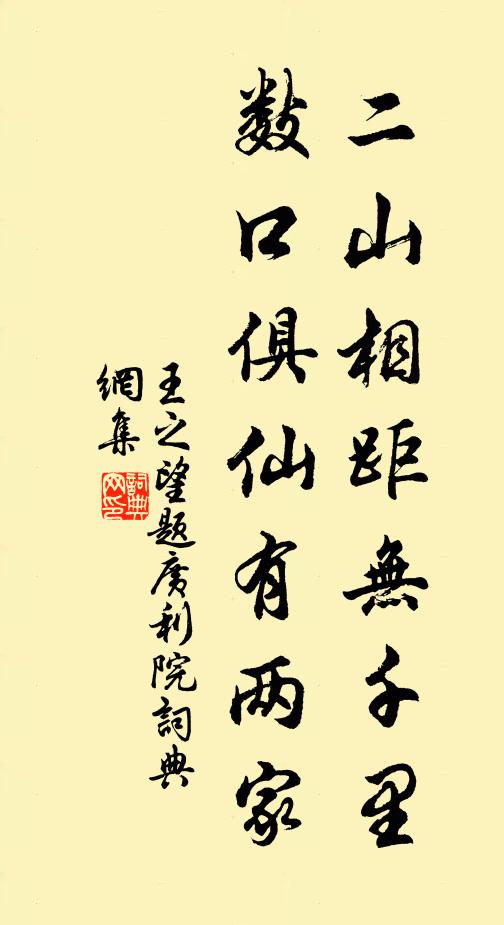 二山相距無千里
數口俱仙有兩家
王之望題廣利院詞典
網集
詞典
网印